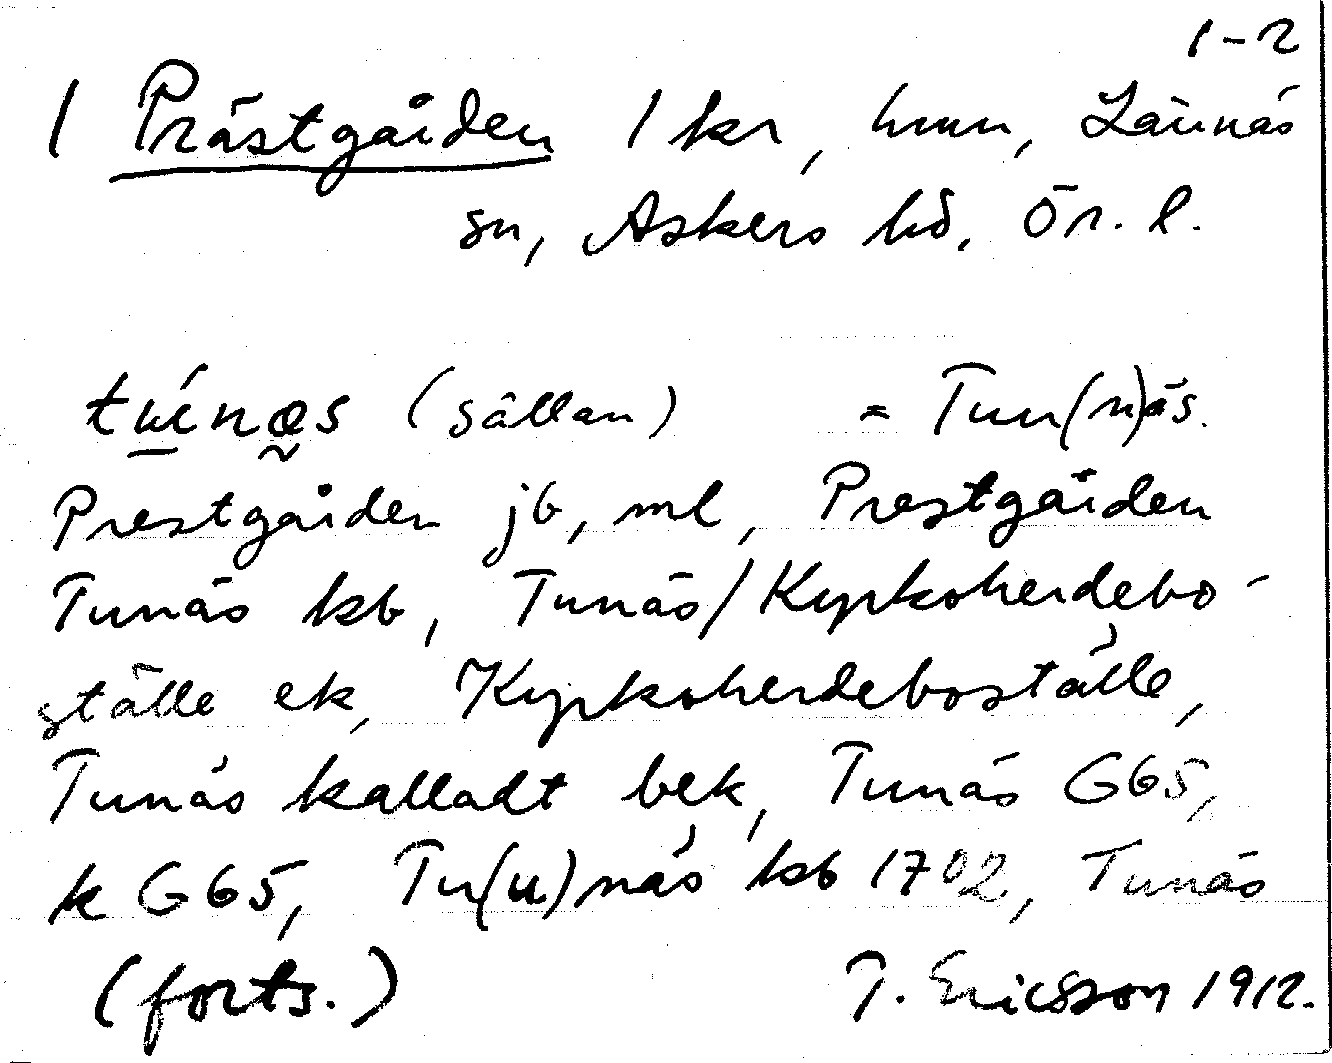 1-2
1 Prästgården 1 kr, hmn, Lännäs
sn, Askers hd. Ör. l.
túnæs (sällan) = Tun(n)äs.
Prestgården jb, ml, Prestgården
Tunäs kb, Tunäs/Kyrkoherdebo-
ställe ek, Kyrkoherdeboställe,
Tunäs kalladt bek, Tunäs G65,
k G65, Tu(u)näs ksb 1702, Tunäs
(forts.) T. Ericsson 1912.